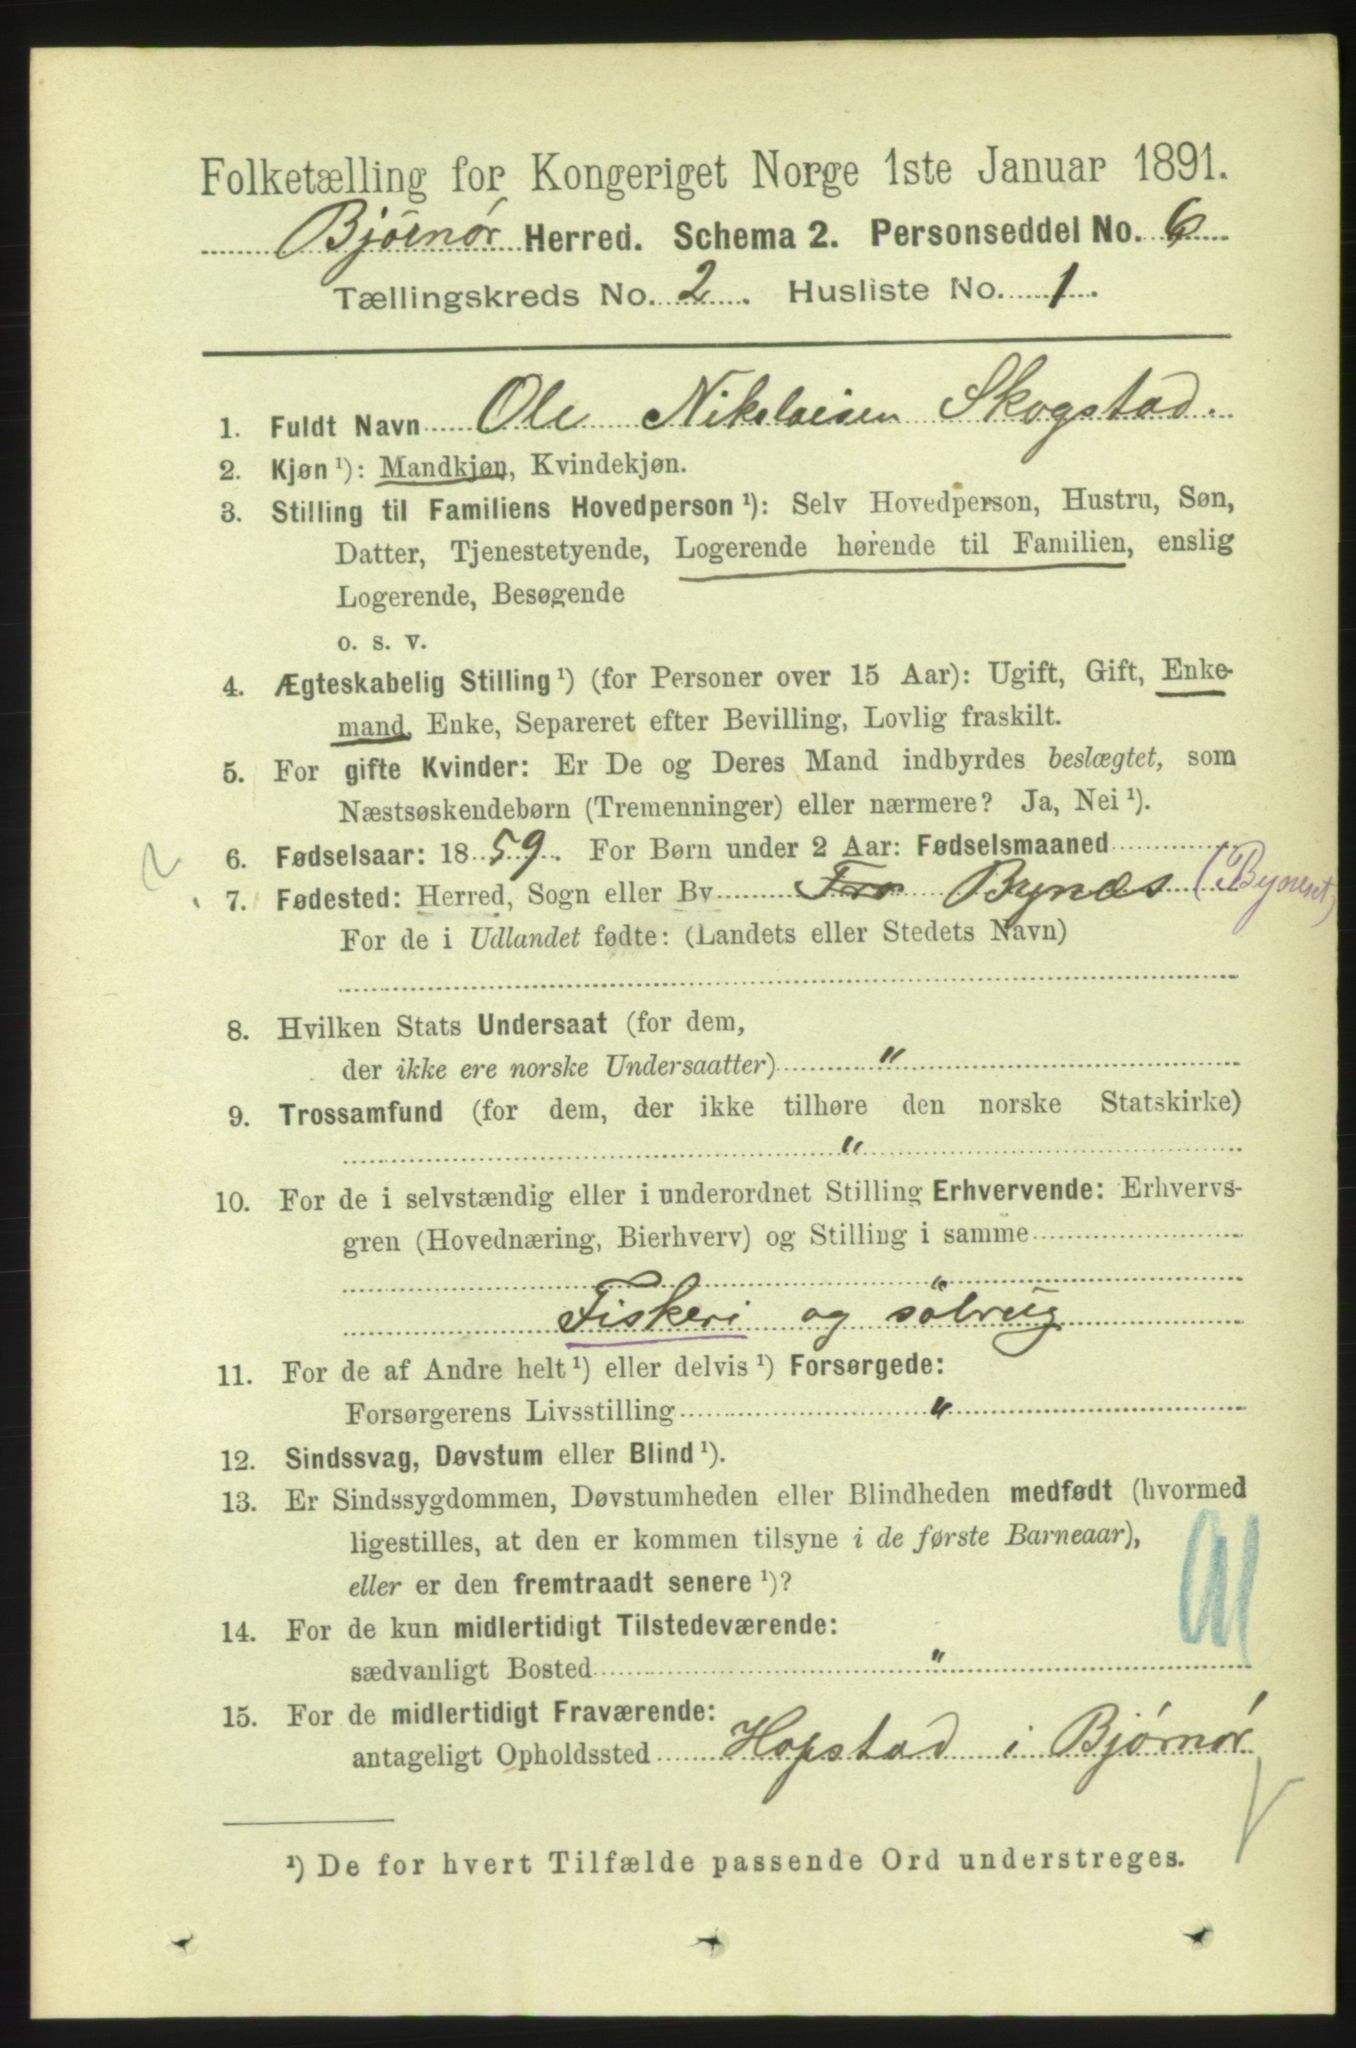 Folketælling for Kongeriget Norge 1ste Januar 1891.
Bjørnør Herred. Schema 2. Personseddel No. 6
Tællingskreds No. 2. Husliste No. 1.
1. Fuldt Navn Ole Nikolaisen Skogstad.
2. Kjøn ¹): Mandkjøn, Kvindekjøn.
3. Stilling til Familiens Hovedperson ¹): Selv Hovedperson, Hustru, Søn,
Datter, Tjenestetyende, Logerende hørende til Familien, enslig
Logerende, Besøgende
o. s. v.
4. Ægteskabelig Stilling ¹) (for Personer over 15 Aar): Ugift, Gift, Enke-
mand, Enke, Separeret efter Bevilling, Lovlig fraskilt.
5. For gifte Kvinder: Er De og Deres Mand indbyrdes beslægtet, som
Næstsøskendebørn (Tremenninger) eller nærmere? Ja, Nei ¹).
6. Fødselsaar: 1859. For Børn under 2 Aar: Fødselsmaaned
7. Fødested: Herred, Sogn eller By Fra Bynæs (Byneset)
For de i Udlandet fødte: (Landets eller Stedets Navn)
8. Hvilken Stats Undersaat (for dem,
der ikke ere norske Undersaatter) "
9. Trossamfund (for dem, der ikke tilhøre den norske Statskirke)
"
10. For de i selvstændig eller i underordnet Stilling Erhvervende: Erhvervs-
gren (Hovednæring, Bierhverv) og Stilling i samme
"
Fiskeri og
11. For de af Andre helt ¹) eller delvis ¹) Forsørgede:
Forsørgerens Livsstilling "
12. Sindssvag, Døvstum eller Blind ¹).
13. Er Sindssygdommen, Døvstumheden eller Blindheden medfødt (hvormed
ligestilles, at den er kommen tilsyne i de første Barneaar),
eller er den fremtraadt senere ¹)?
14. For de kun midlertidigt Tilstedeværende:
sædvanligt Bosted "
15. For de midlertidigt Fraværende:
antageligt Opholdssted Hopstad i Bjørnør
¹) De for hvert Tilfælde passende Ord understreges.